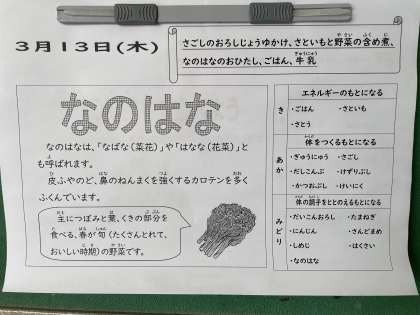 3月13日(木)
さごしのおろしじょうゆかけ、さといもと野菜の含め煮、
なのはなのおひたし、ごはん、牛乳
なのはな
なのはなは、「なばな(菜花)」や「はなな(花菜)」と
も呼ばれます。
皮ふやのど、鼻のねんまくを強くするカロテンを多く
ふくんでいます。
主につぼみと葉、くきの部分を
食べる、春が旬(たくさんとれて、
おいしい時期)の野菜です。
き
エネルギーのもとになる
・ごはん ・さといも
・さとう
あか
体をつくるもとになる
・ぎゅうにゅう ・さごし
・だしこんぶ ・けずりぶし
・かつおぶし ・けいにく
みどり
体の調子をととのえるもとになる
・だいこんおろし ・たまねぎ
・にんじん ・さんどまめ
・しめじ ・はくさい
・なのはな